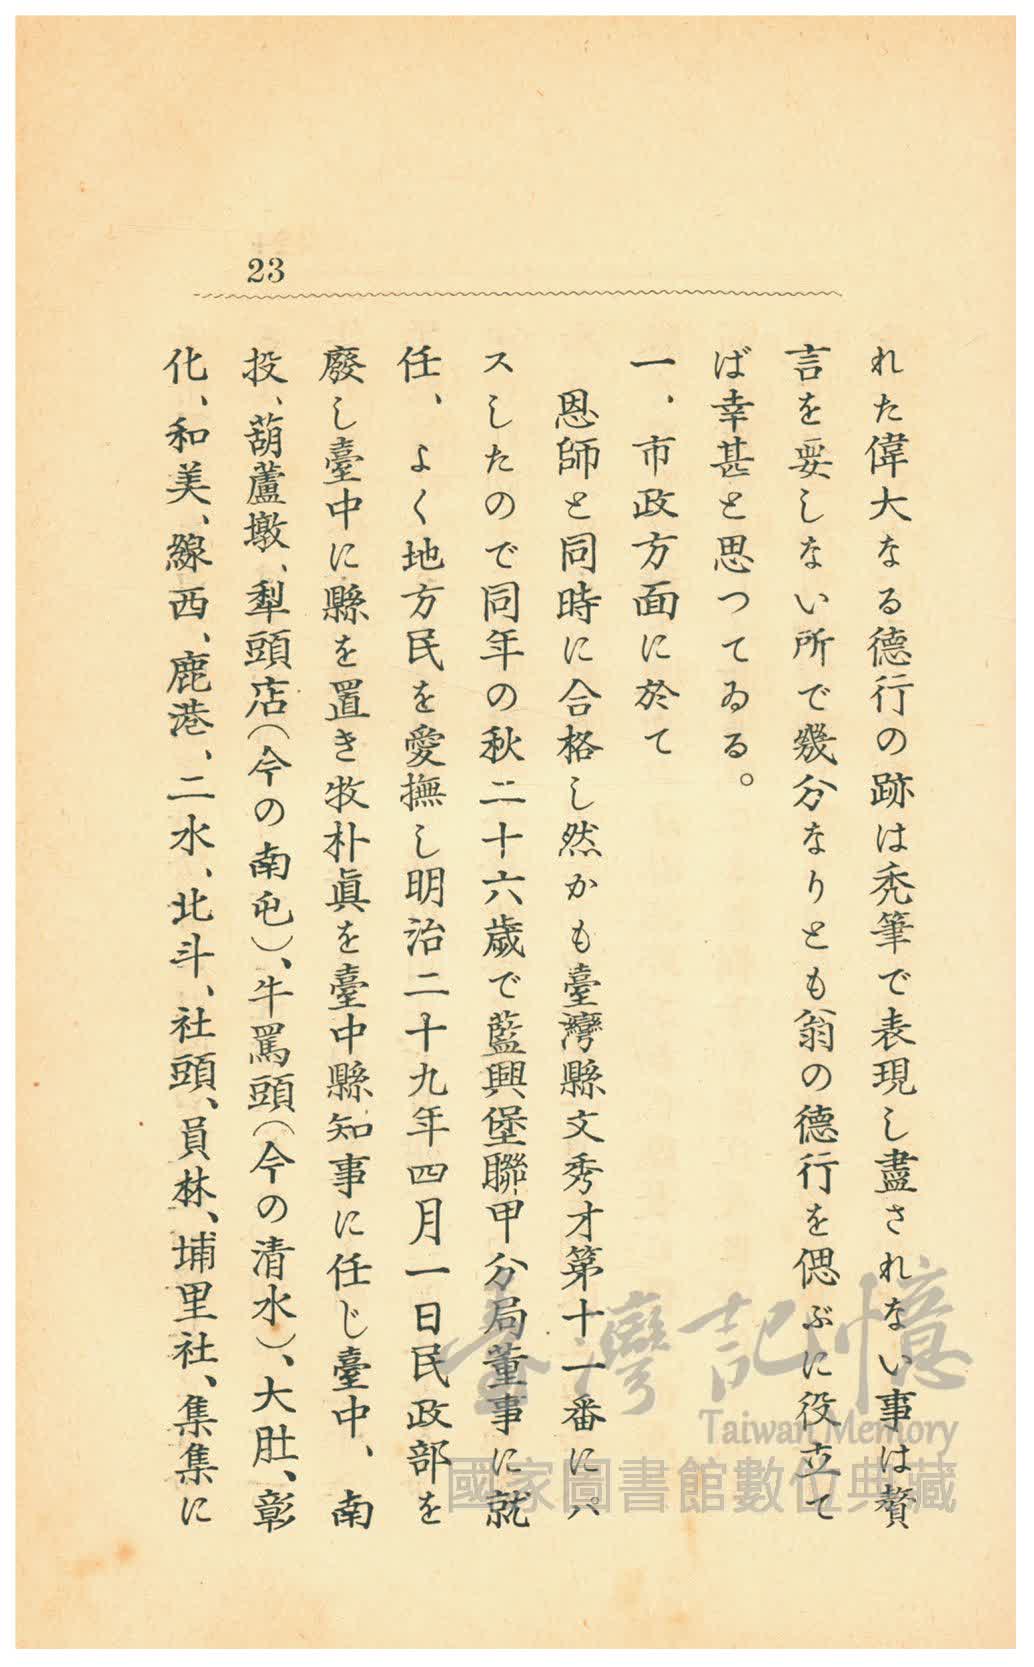 23
れた偉大なる德行の跡は禿筆で表現し盡されない事は贅
言を要しない所で幾分なりとも翁の德行を偲ぶに役立て
ば幸甚と思つてゐる。
一．市政方面に於て
恩師と同時に合格し然かも臺灣縣文秀才第十一番にパ
スしたので同年の秋二十六歲で藍興堡聯甲分局董事に就
任、よく地方民を愛撫し明治二十九年四月一日民政部を
廢し臺中に縣を置き牧朴眞を臺中縣知事に任じ臺中、南
投、葫蘆墩、犁頭店（今の南屯）、牛罵頭（今の清水）、大肚、彰
化、和美、線西、鹿港、二水、北斗、社頭、員林、埔里社、集集に
臺灣記憶
Taiwan Memory
國家圖書館數位典藏